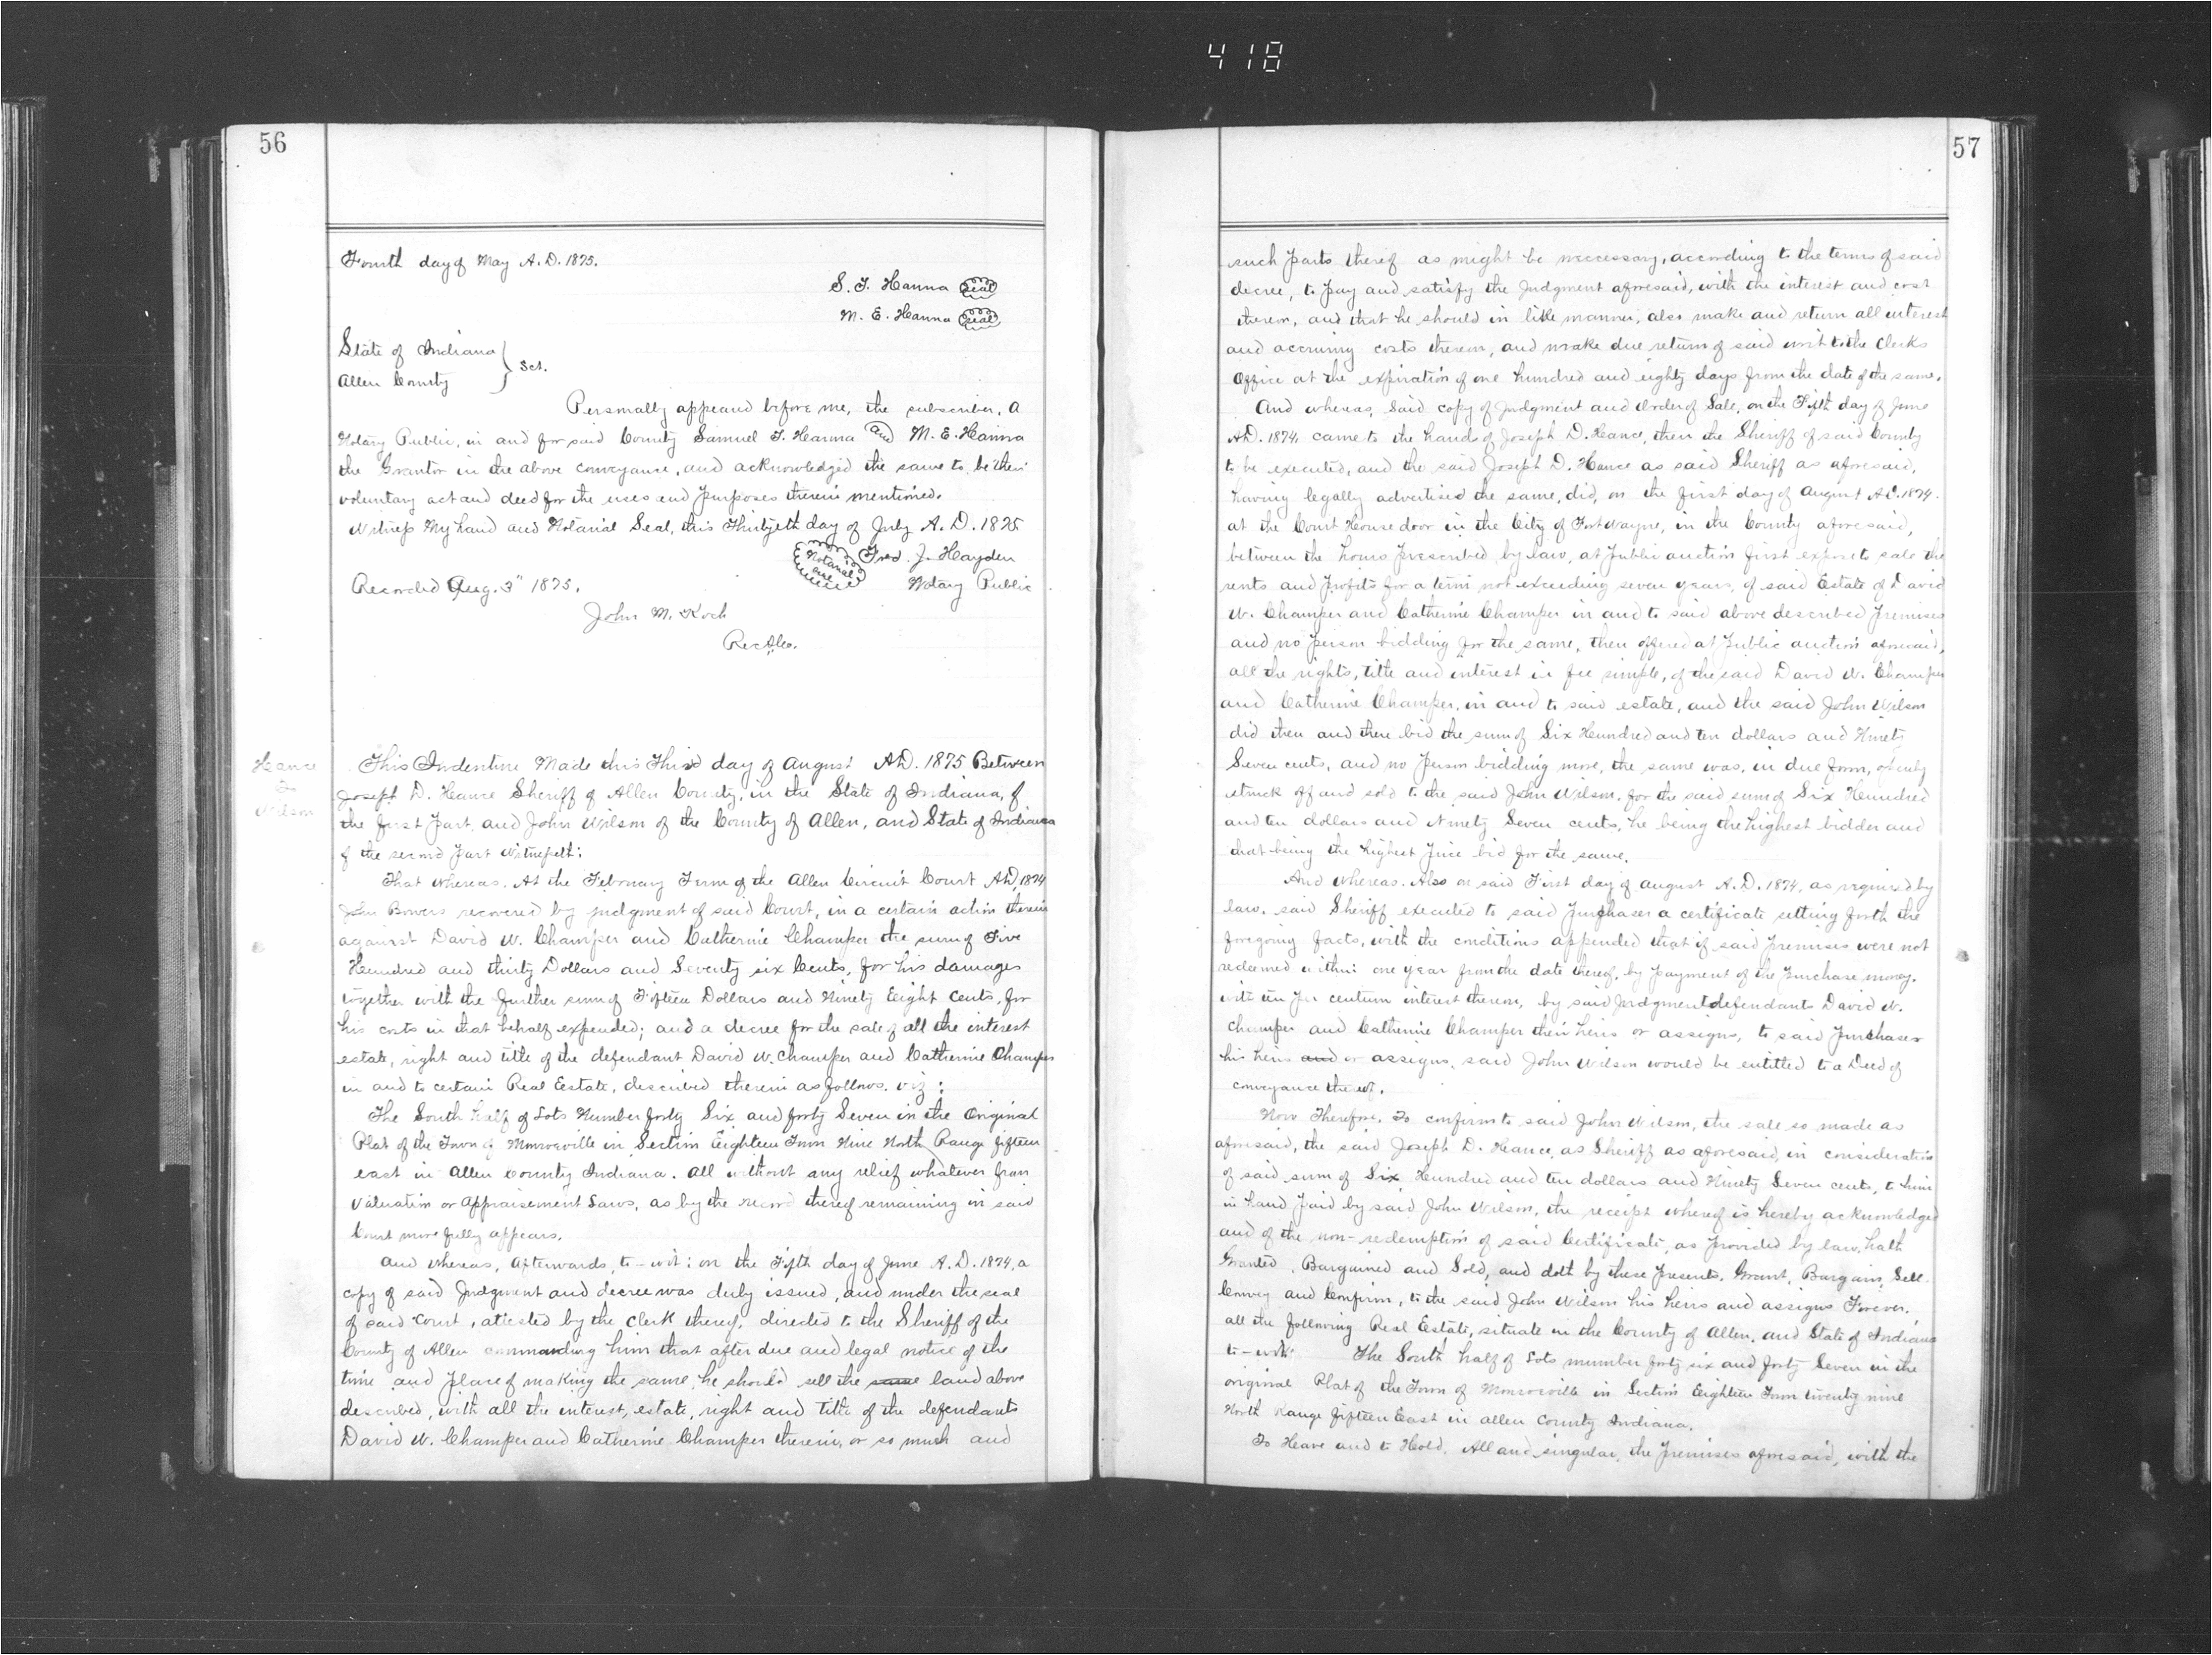 418
56
Fourth day of May A.D. 1875.
S. T. Hanna Seal
M. E. Hanna Seal
State of Indiana
Allen County } Sct.
Personally appeared before me, the subscriber, a
Notary Public, in and for said County Samuel T. Hanna and M. E. Hanna
the Grantor in the above conveyance, and acknowledged the same to be their
voluntary act and deed for the uses and purposes therein mentioned.
Witness My hand and Notarial Seal, this Thirtyeth day of July A. D. 1875
Fred. J. Hayden
Notarial
Recorded Aug. 3" 1875. Notary Public
John M. Koch
Hance
&
Wilson
This Indenture Made this Third day of August AD. 1875 Between
Joseph D. Hance Sheriff of Allen County, in the State of Indiana, of
the first Part, and John Wilson of the County of Allen, and State of Indiana
of the second Part Witnesseth:
That whereas, At the February Term of the Allen Circuit Court AD, 1874
John Bowers recovered by judgment of said Court, in a certain action therein
against David W. Champer and Catherine Champer the sum of Five
Hundred and thirty Dollars and Seventy six Cents, for his damages
together with the further sum of Fifteen Dollars and Ninety Eight Cents, for
his costs in that behalf expended; and a decree for the sale of all the interest
estate, right and title of the defendant David W. Champer and Catherine Champer
in and to certain Real Eestate, described therein as follows. viz:
The South half of Lots Number forty Six and forty Seven in the Original
Plat of the Town of Monroeville in Section Eighteen Town Nine North Range fifteen
east in Allen County Indiana. All without any relief whatever from
Valuation or Appraisement Laws, as by the record thereof remaining in said
Court more fully appears.
And whereas, Afterwards, to-wit: on the Fifth day of June A. D. 1874, a
copy of said Judgment and decree was duly issued, and under the seal
of said Court, attested by the Clerk thereof, directed to the Sheriff of the
County of Allen commanding him that after due and legal notice of the
time and Place of making the same, he should sell the same land above
described, with all the interest, estate, right and title of the defendants
David W. Champer and Catherine Champer therein, or so much and
57
such Parts thereof as might be neccessary, according to the terms of said
decree, to Pay and satisfy the Judgment aforesaid, with the interest and cost
thereon, and that he should in like manner, also make and return all interest
and accruing costs thereon, and make due return of said writ to the Clerks
Office at the expiration of one hundred and eighty days from the date of the same.
And whereas, Said copy of Judgment and Order of Sale, on the Fifth day of June
AD. 1874, came to the hands of Joseph D. Hance, then the Sheriff of said County
to be executed, and the said Joseph D. Hance as said Sheriff as aforesaid,
having legally advertised the same, did, on the first day of August A.D. 1874.
at the Court House door in the City of Fort Wayne, in the County aforesaid,
between the hours Prescribed by law, at Public auction first expose to sale the
rents and Profits for a term not exceeding seven years, of said Estate of David
W. Champer and Catherine Champer in and to said above described Premises
and no Person bidding for the same, then offered at Public auction aforesaid,
all the rights, title and interest in fee simple, of the said David W. Champer
and Catherine Champer, in and to said estate, and the said John Wilson
did then and there bid the sum of Six Hundred and ten dollars and Ninety
Seven cents, and no Person bidding more, the same was, in due form, openly
struck off and sold to the said John Wilson, for the said sum of Six Hundred
and ten dollars and Ninety Seven cents, he being the highest bidder and
that being the highest Price bid for the same.
And whereas, Also on said First day of August A. D. 1874, as required by
law, said Sheriff executed to said Purchaser a certificate setting forth the
foregoing facts, with the conditions appended that if said premises were not
redeemed within one year from the date thereof, by payment of the Purchase money,
with ten Per centum interest thereon, by said Judgment defendants David W.
Champer and Catherine Champer their heirs or assigns, to said Purchaser
his heirs and or assigns, said John Wilson would be entitled to a Deed of
conveyance thereof.
Now Therefore, To confirm to said John Wilson, the sale so made as
aforesaid, the said Joseph D. Hance, as Sheriff as aforesaid, in consideration
of said sum of Six Hundred and ten dollars and Ninety Seven cents, to him
in hand Paid by said John Wilson, the receipt whereof is hereby acknowledged
and of the non-redemption of said Certificate, as Provided by law, hath
Granted, Bargained and Sold, and doth by these Presents, Grant, Bargain, Sell
Convey and Confirm, to the said John Wilson his heirs and assigns Forever,
all the following Real Eestate, situate in the County of Allen, and State of Indiana
to-wit: The South half of Lots number forty six and forty Seven in the
original Plat of the Town of Monroeville in Section Eighteen Town twenty nine
North Range fifteen East in Allen County Indiana.
To Have and to Hold, All and singular, the Premises aforesaid, with the